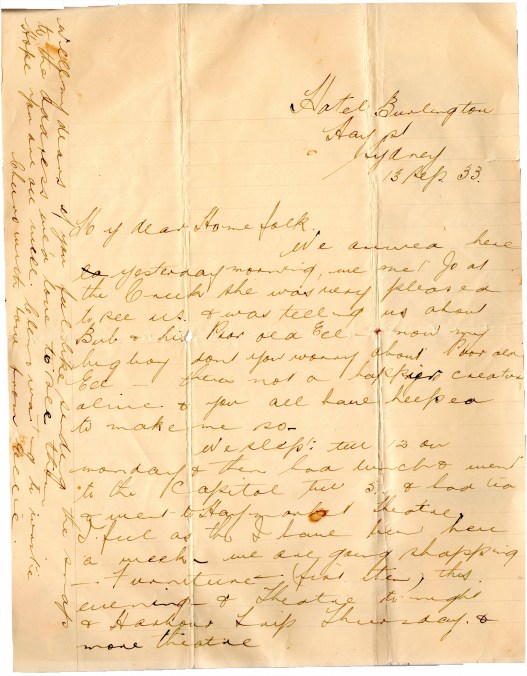 Hotel Burlington
Hay st
Sydney
13 Sep 33.
My dear Home folk.
We arrived here
yesterday morning, we met Jo at
the Creek she was very pleased
to see us. & was telling us about
Bub & his Poor old Ecl - now my
big boy dont you worry about Poor old
Ecl theres not a happier creature
alive & you all have helped
to make me so -
We slept till 12 on
monday & then had lunch & went
to the Capitol till 5. & had tea
& went to Haymarket Theatre,
I feel as tho I have been here
a week - we are going shopping
- Furniture - (first then) this
evening & Theatre to-night
& Harbour Trip Thursday. &
more theatre
Well my dears if you feel like sending the snaps
to the address we'd love to see them
Hope you are all well. Glen's waiting to write
Cheerio with love from